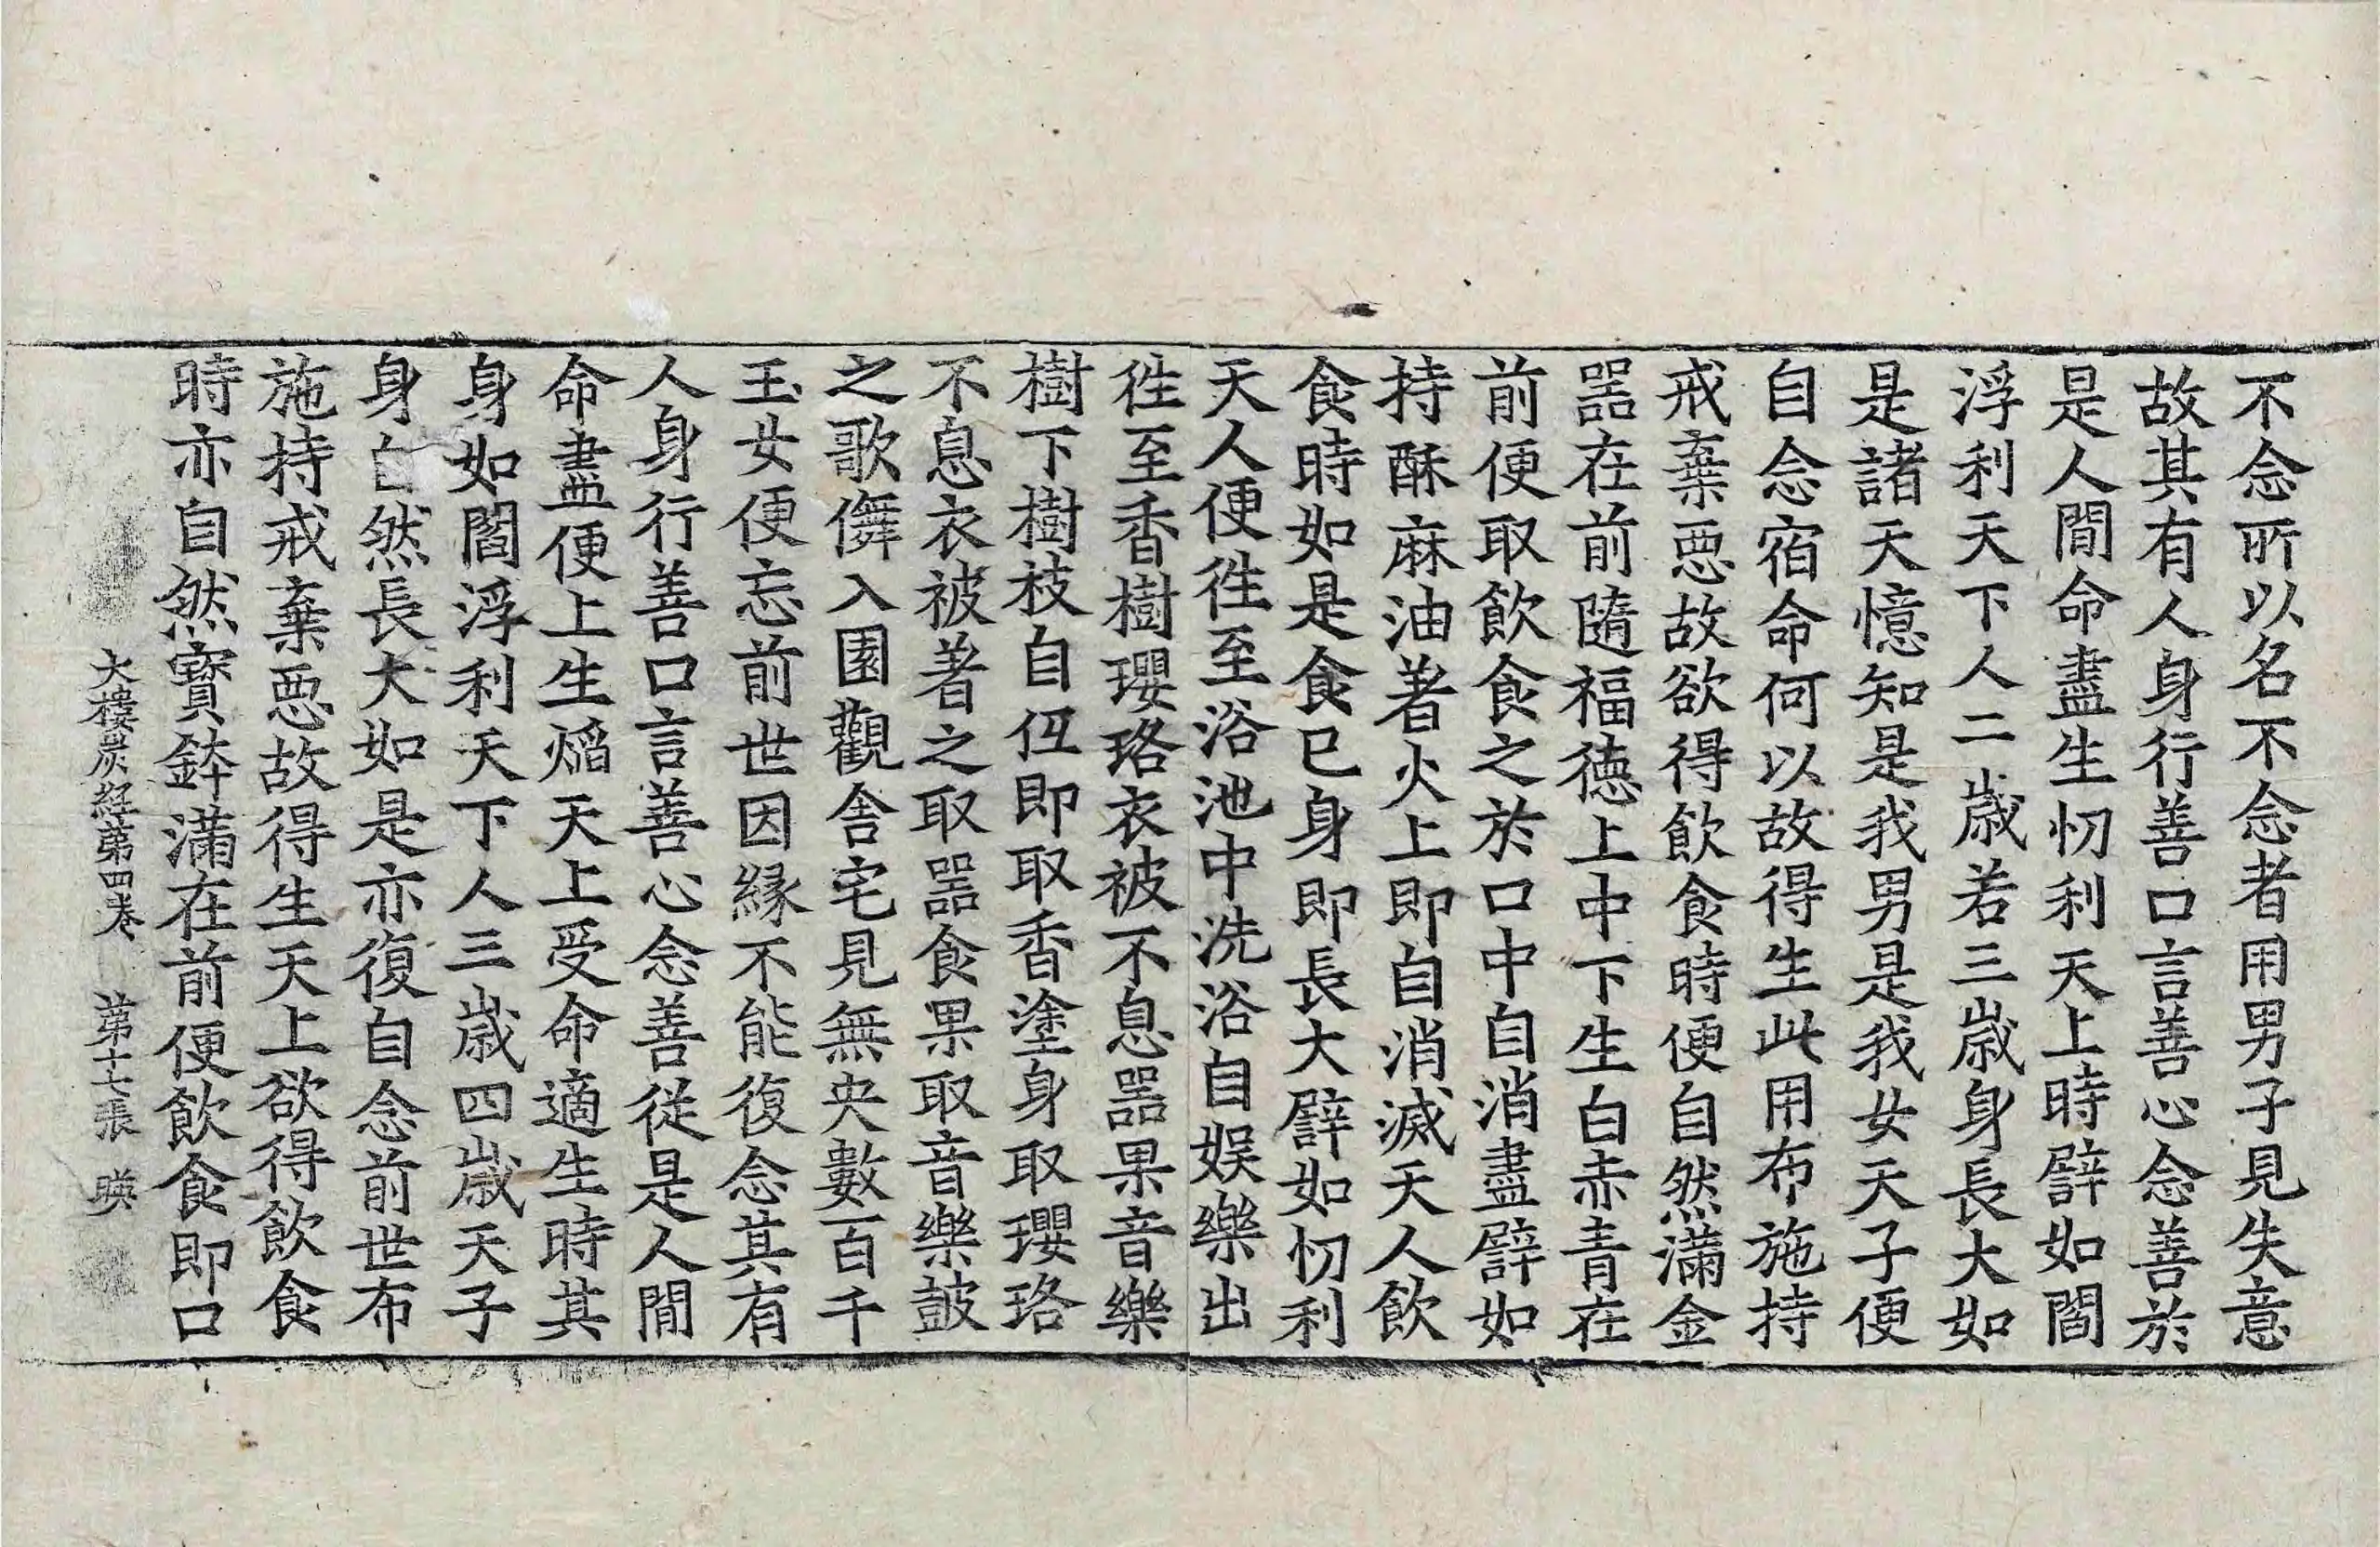 不念所以名不念者用男子見失意
故其有人身行善口言善心念善於
是人間命盡生忉利天上時譬如閻
浮利天下人二歳若三歳身長大如
是諸天憶知是我男是我女天子便
自念宿命何以故得生此用布施持
戒棄惡故欲得飲食時便自然滿金
器在前隨福德上中下生白赤青在
前便取飲食之於口中自消盡譬如
持酥麻油著火上即自消滅天人飲
食時如是食已身即長大譬如忉利
天人便徃至浴池中洗浴自娱樂出
徃至香樹瓔珞衣被不息器果音樂
樹下樹枝自伍即取香塗身取瓔珞
不息衣被著之取器食果取音樂鼓
之歌儛入園觀舎宅見無央數百千
玉女便忘前世因縁不能復念其有
人身行善口言善心念善從是人間
命盡便上生焰天上受命適生時其
身如閻浮利天下人三歳四歳天子
身自然長大如是亦復自念前世布
施持戒棄惡故得生天上欲得飲食
時亦自然寶鉢滿在前便飲食即口
大樓炭経第四巻 第十七張 暎